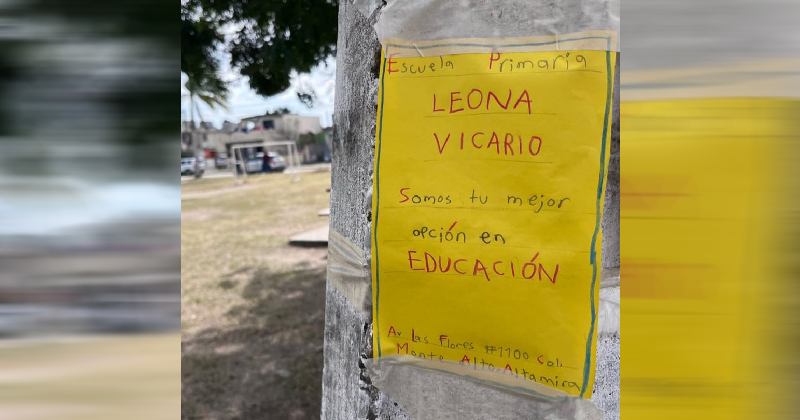 Escuela Primaria
LEONA
VICARIO
Somos tu mejor
opción en
EDUCACIÓN
Av Las Flores #1100 Col.
Monte Alto, Altamira